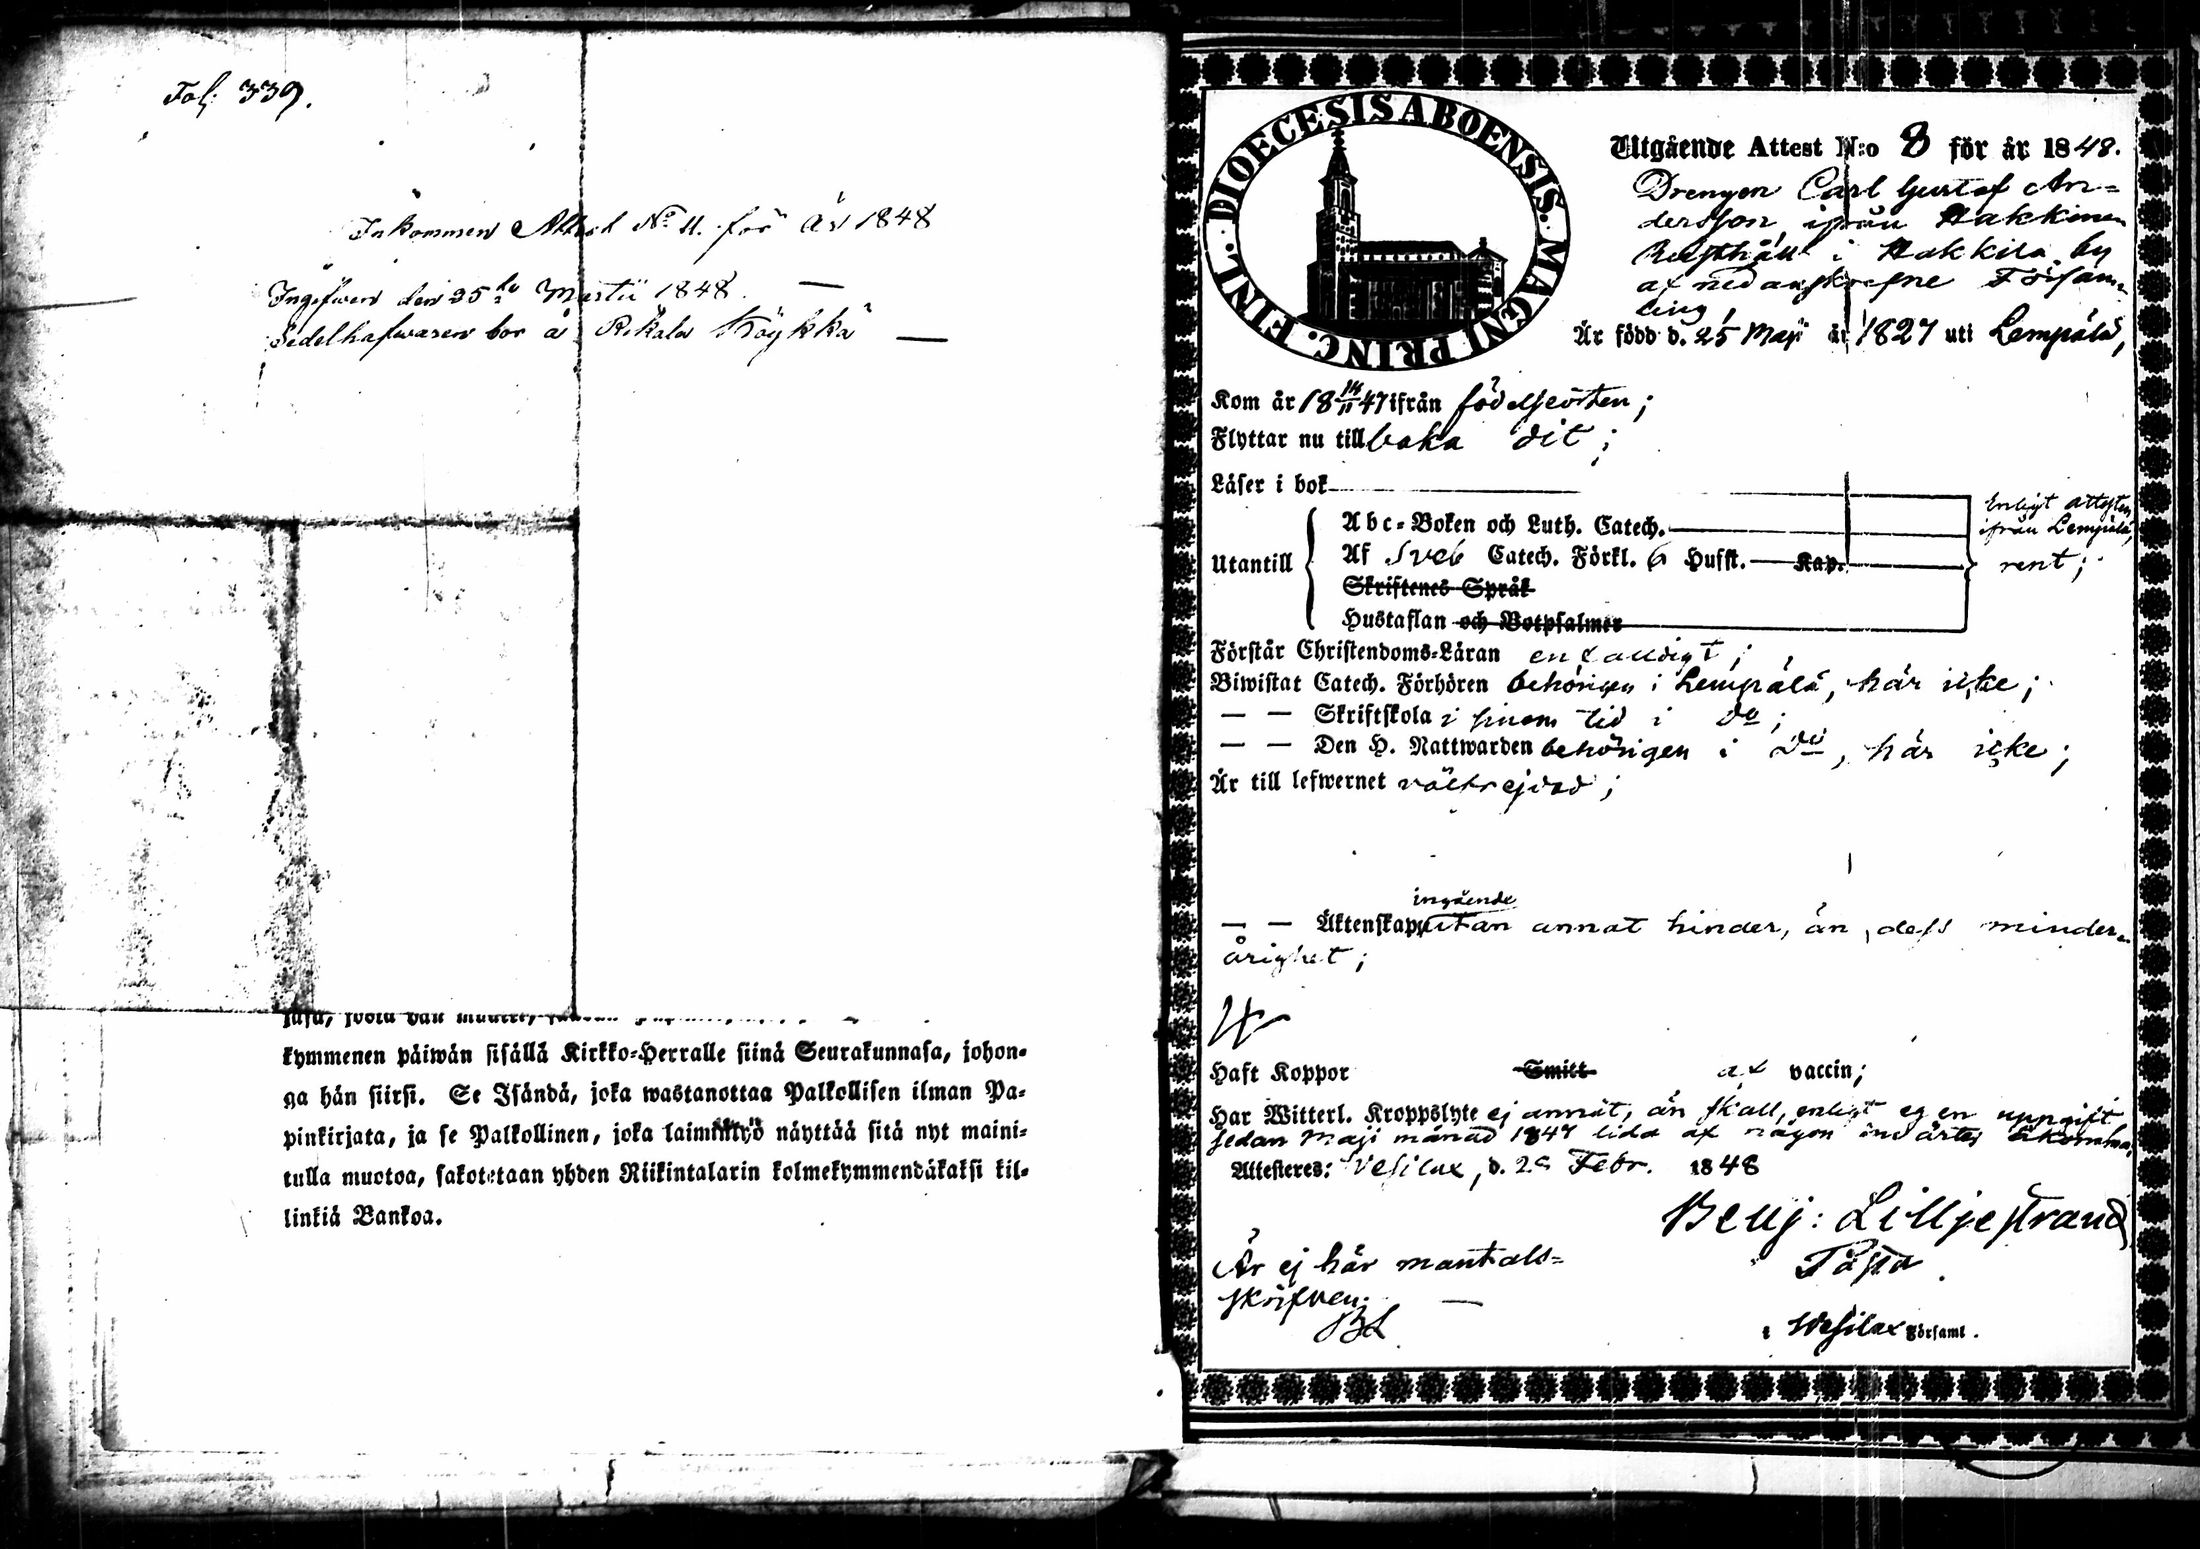 Fol: 339.
Inkommen Attest No 11. för År 1848
Ingifwen den 25 Martii 1848. —
Sedelhafwaren bor å Rikala Höykkä —
kymmenen päiwän sisällä Kirkko-Herralle siinä Seurakunnasa, johon-
ga hän siirsi. Se Isändä, joka wastanottaa Palkollisen ilman Pa-
pinkirjata, ja se Palkollinen, joka laiminlyö näyttää sitä nyt maini-
tulla muotoa, sakotetaan yhden Riikintalarin kolmekymmendäkaksi kil-
linkiä Bankoa.
DIOECESIS ABOENSIS. MAGNI PRINC. FINL.
Utgående Attest N:o 8 för år 1848.
Drengen Carl Gustaf An-
dersson, ifrån Hakkinen
Rusthåll i Hakkila by
af nedanskrefne Försam-
ling
Är född d. 25 Maji år 1827 uti Lempälä,
Kom år 18 14/11 47 ifrån födelseorten;
Flyttar nu tillbaka dit;
Läser i bok
Enligt attesten
ifrån Lempälä,
Abc-Boken och Luth. Catech.
Utantill
Af Sveb Catech. Förkl. 6 Hufst. — Kap.
rent;
Skriftenes Språk
Hustaflan och Botpsalmer
Förstår Christendoms-Läran enfaldigt;
Biwistat Catech. Förhören behörigen i Lempälä, här icke;
— — Skriftskola i sinom tid i do;
— — Den H. Nattwarden behörigen i do, här icke;
Är till lefwernet oförtrejdad;
ingående
— — Äktenskap utan annat hinder, än dess minder-
årighet;
Haft Koppor Smitt af vaccin;
Har Witterl. Kroppslyte ej annat, än skall, enligt egen uppgift
sedan Maji månad 1847 lida af någon invärtes åkomma,
Attesteres: Vesilax, d. Febr. 1848
Benj: Liljestrand
Är ej här mantals-
skrifven. —
BL
i Wesilax Församl.